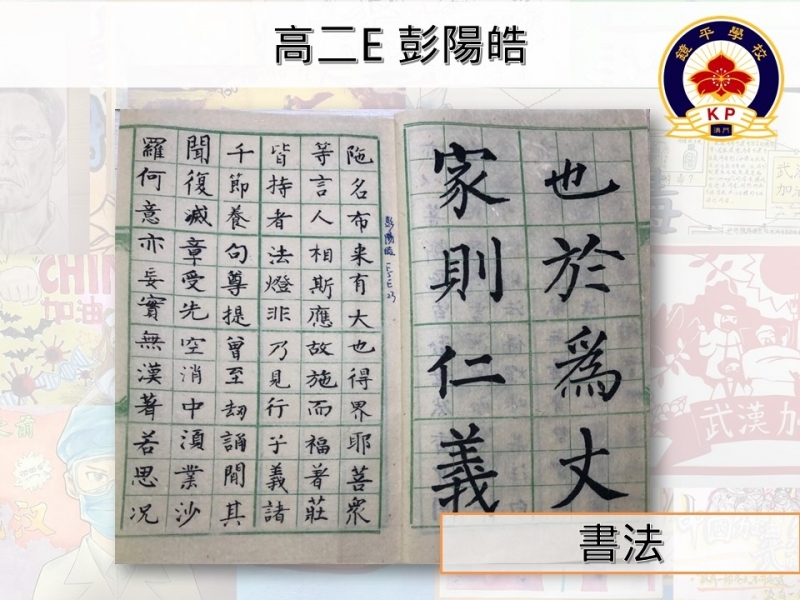 高二E 彭陽皓
鏡平學校
KP
澳門
也於爲丈
家則仁義
彭陽皓
陁名布来有大也得界耶菩衆
等言人相斯應故施而福著莊
皆持者法燈非乃見行于義諸
千節養句尊提曾至劫誦聞其
聞復滅章受先空消中湏業沙
羅何意亦妄實無漢著若思况
CHIN
加油
武漢加
書法